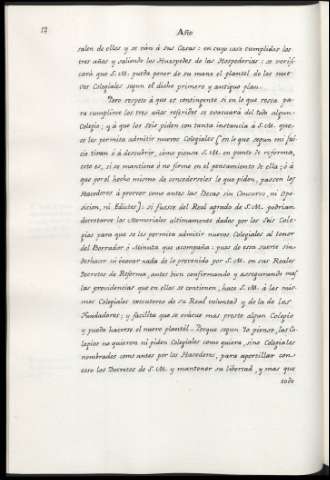 12
Año
salen de ellos y se ván á sus Casas: en cuyo caso cumplidos los
tres años y saliendo los Huespedes de las Hospederias: se verifi-
cará que S. M. pueda poner de su mano el plantél de los nue-
vos Colegiales segun el dicho primero y antiguo plan.
Pero respeto á que es contingente si en lo que resta pa-
ra cumplirse los tres años referidos se evacuará del todo algun
Colegio; y á que los Seis piden con tanta instancia á S. M. que
se les permita admitir nuevos Colegiales (en lo que segun mi jui-
cio tiran á á descubrir, cómo piensa S. M. en punto de reforma,
esto es, si se mantiene ó no firme en el pensamiento de ella; ó á
que por el hecho mismo de concederseles lo que piden, passen los
Hacedores á proveer como antes las Becas sin Concurso, ni Opo-
sicion, ni Edictos): si fuesse del Real agrado de S. M. podrian
decretarse los Memoriales ultimamente dados por los Seis Cole-
gios para que se les permita admitir nuevos Colegiales al tenor
del Borrador ó Minuta que acompaña: pues de esta suerte sin
deshacer ni enervar nada de lo prevenido por S. M. en sus Reales
Decretos de Reforma, antes bien confirmando y assegurando mas
las providencias que en ellos se contienen, hace S. M. á los mis-
mos Colegiales executores de su Real voluntad y de la de los
Fundadores; y facilita que se evácue mas presto algun Colegio
y pueda hacerse el nuevo plantél. Porque segun Yo pienso, los Co-
legios no quieren ni piden Colegiales como quiera, sino Colegiales
nombrados como antes por los Hacedores, para aportillar con
esso los Decretos de S. M. y mantener su libertad, y mas que
todo